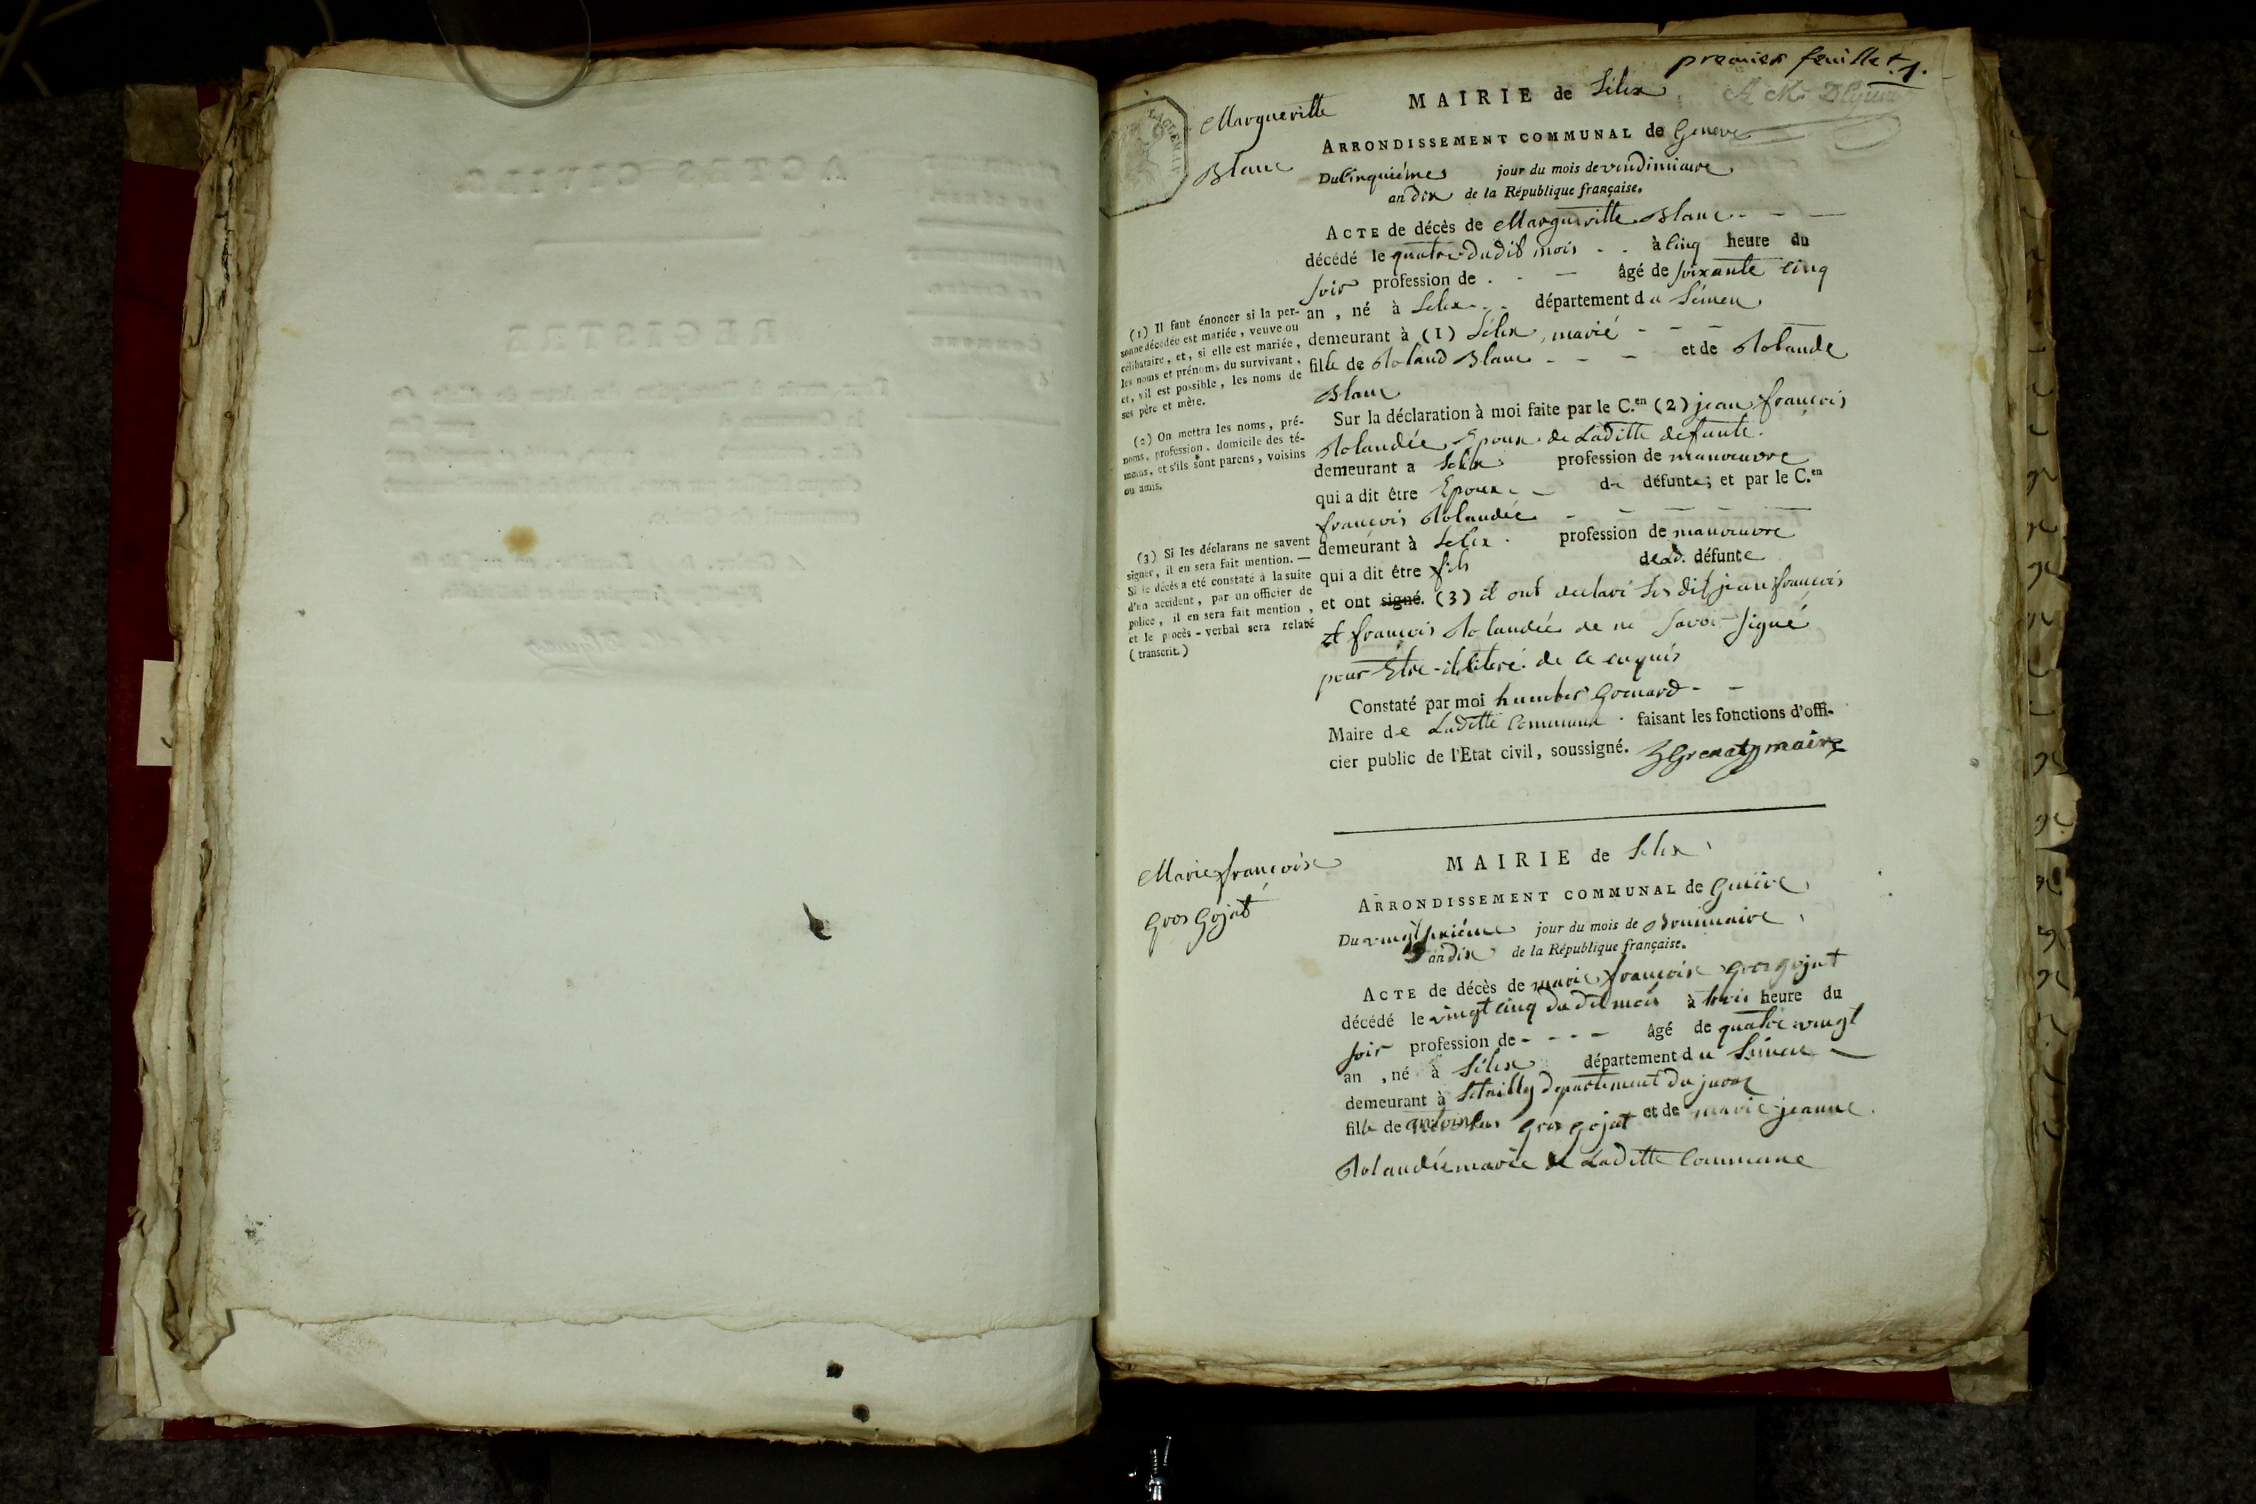 premier feuillet 1.
Marguerritte
Blanc
MAIRIE de Lélex
ARRONDISSEMENT COMMUNAL de Geneve
Du Cinquiémes jour du mois de vendimiaire
an dix de la République française.
ACTE de décès de Marguerritte Blanc - - —
décédé le quatre dudit mois - - à Cinq heure du
soir profession de . - — âgé de soixante cinq
an , né à Lelex - - département du Léman
demeurant à (1) Lélex, marié - - -
fille de Roland Blanc - - - et de Rolande
Blanc
Sur la déclaration à moi faite par le C.en (2) jean françois
Rolandée Epoux de Laditte defunte.
demeurant a Lelex profession de manouvre
qui a dit être Epoux - - de défunte; et par le C.en
françois Rolandée - — — —
demeurant à Lelex . profession de manouvre
qui a dit être fils de Ld. défunte
et ont signé. (3) il ont declaré Les dit jean françois
et françois Rolandée de ne savoir signé
pour Etre iliteré de ce enquis
Constaté par moi humber Grenard - -
Maire de Laditte Commune . faisant les fonctions d'offi-
cier public de l'Etat civil, soussigné. maire
(1) Il faut énoncer si la per-
sonne décédée est mariée, veuve ou
célibataire, et, si elle est mariée,
les noms et prénoms du survivant,
et, s'il est possible, les noms de
ses père et mère.
(2) On mettra les noms, pré-
noms, profession, domicile des té-
moins, et s'ils sont parens, voisins
ou amis.
(3) Si les déclarans ne savent
signer, il en sera fait mention. —
Si le décès a été constaté à la suite
d'un accident, par un officier de
police, il en sera fait mention,
et le procès-verbal sera relaté
(transcrit.)
Marie françoise
Gros Gojat
MAIRIE de Lelex
ARRONDISSEMENT COMMUNAL de
Du vingt sixiéme jour du mois de Brumaire
an dix de la République française.
ACTE de décès de marie françoise gros gojat
décédé le vingt cinq dudit mois à trois heure du
soir profession de - - - - âgé de quatre vingt
an , né à Lélex département du Léman —
demeurant à departement du jura
fille de gros gojat et de marie jeanne
Rolandée marée de Laditte Commune